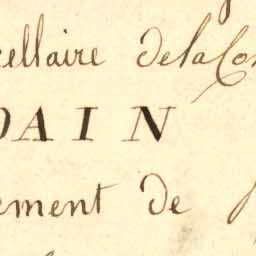 cellaire delaCom
DAIN
ement de